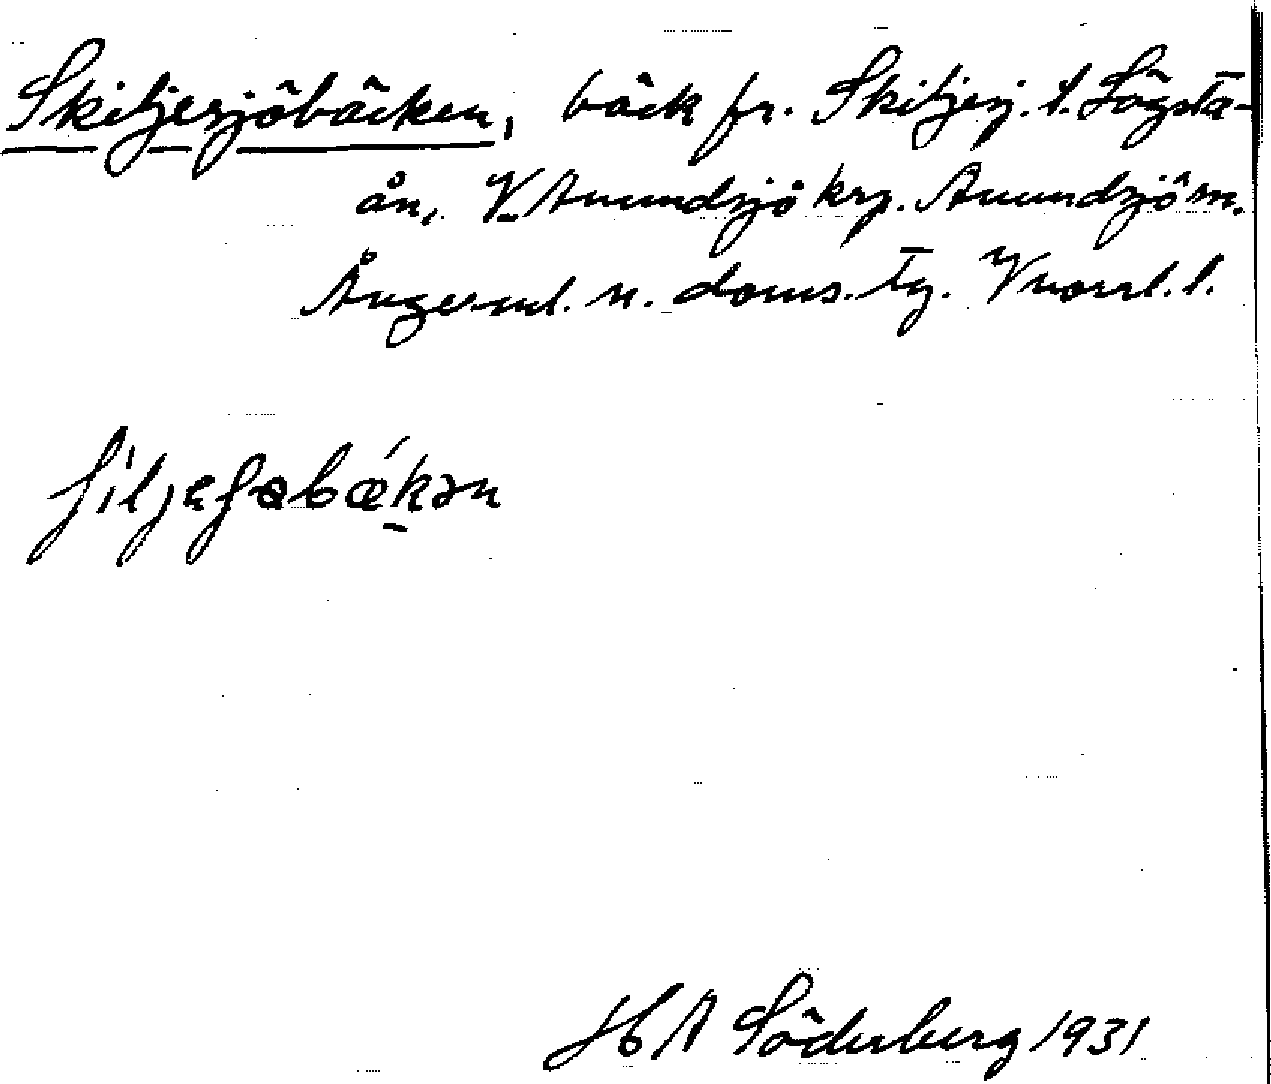 Skiljesjöbäcken, bäck fr. Skiljesj. t. Lögsta-
ån, V. Anundsjö krg. Anundsjö sn.
Ångerml. n. doms. tg. Vnorrl. l.
ʃiljeʃøbǽkən
H A Söderberg 1931